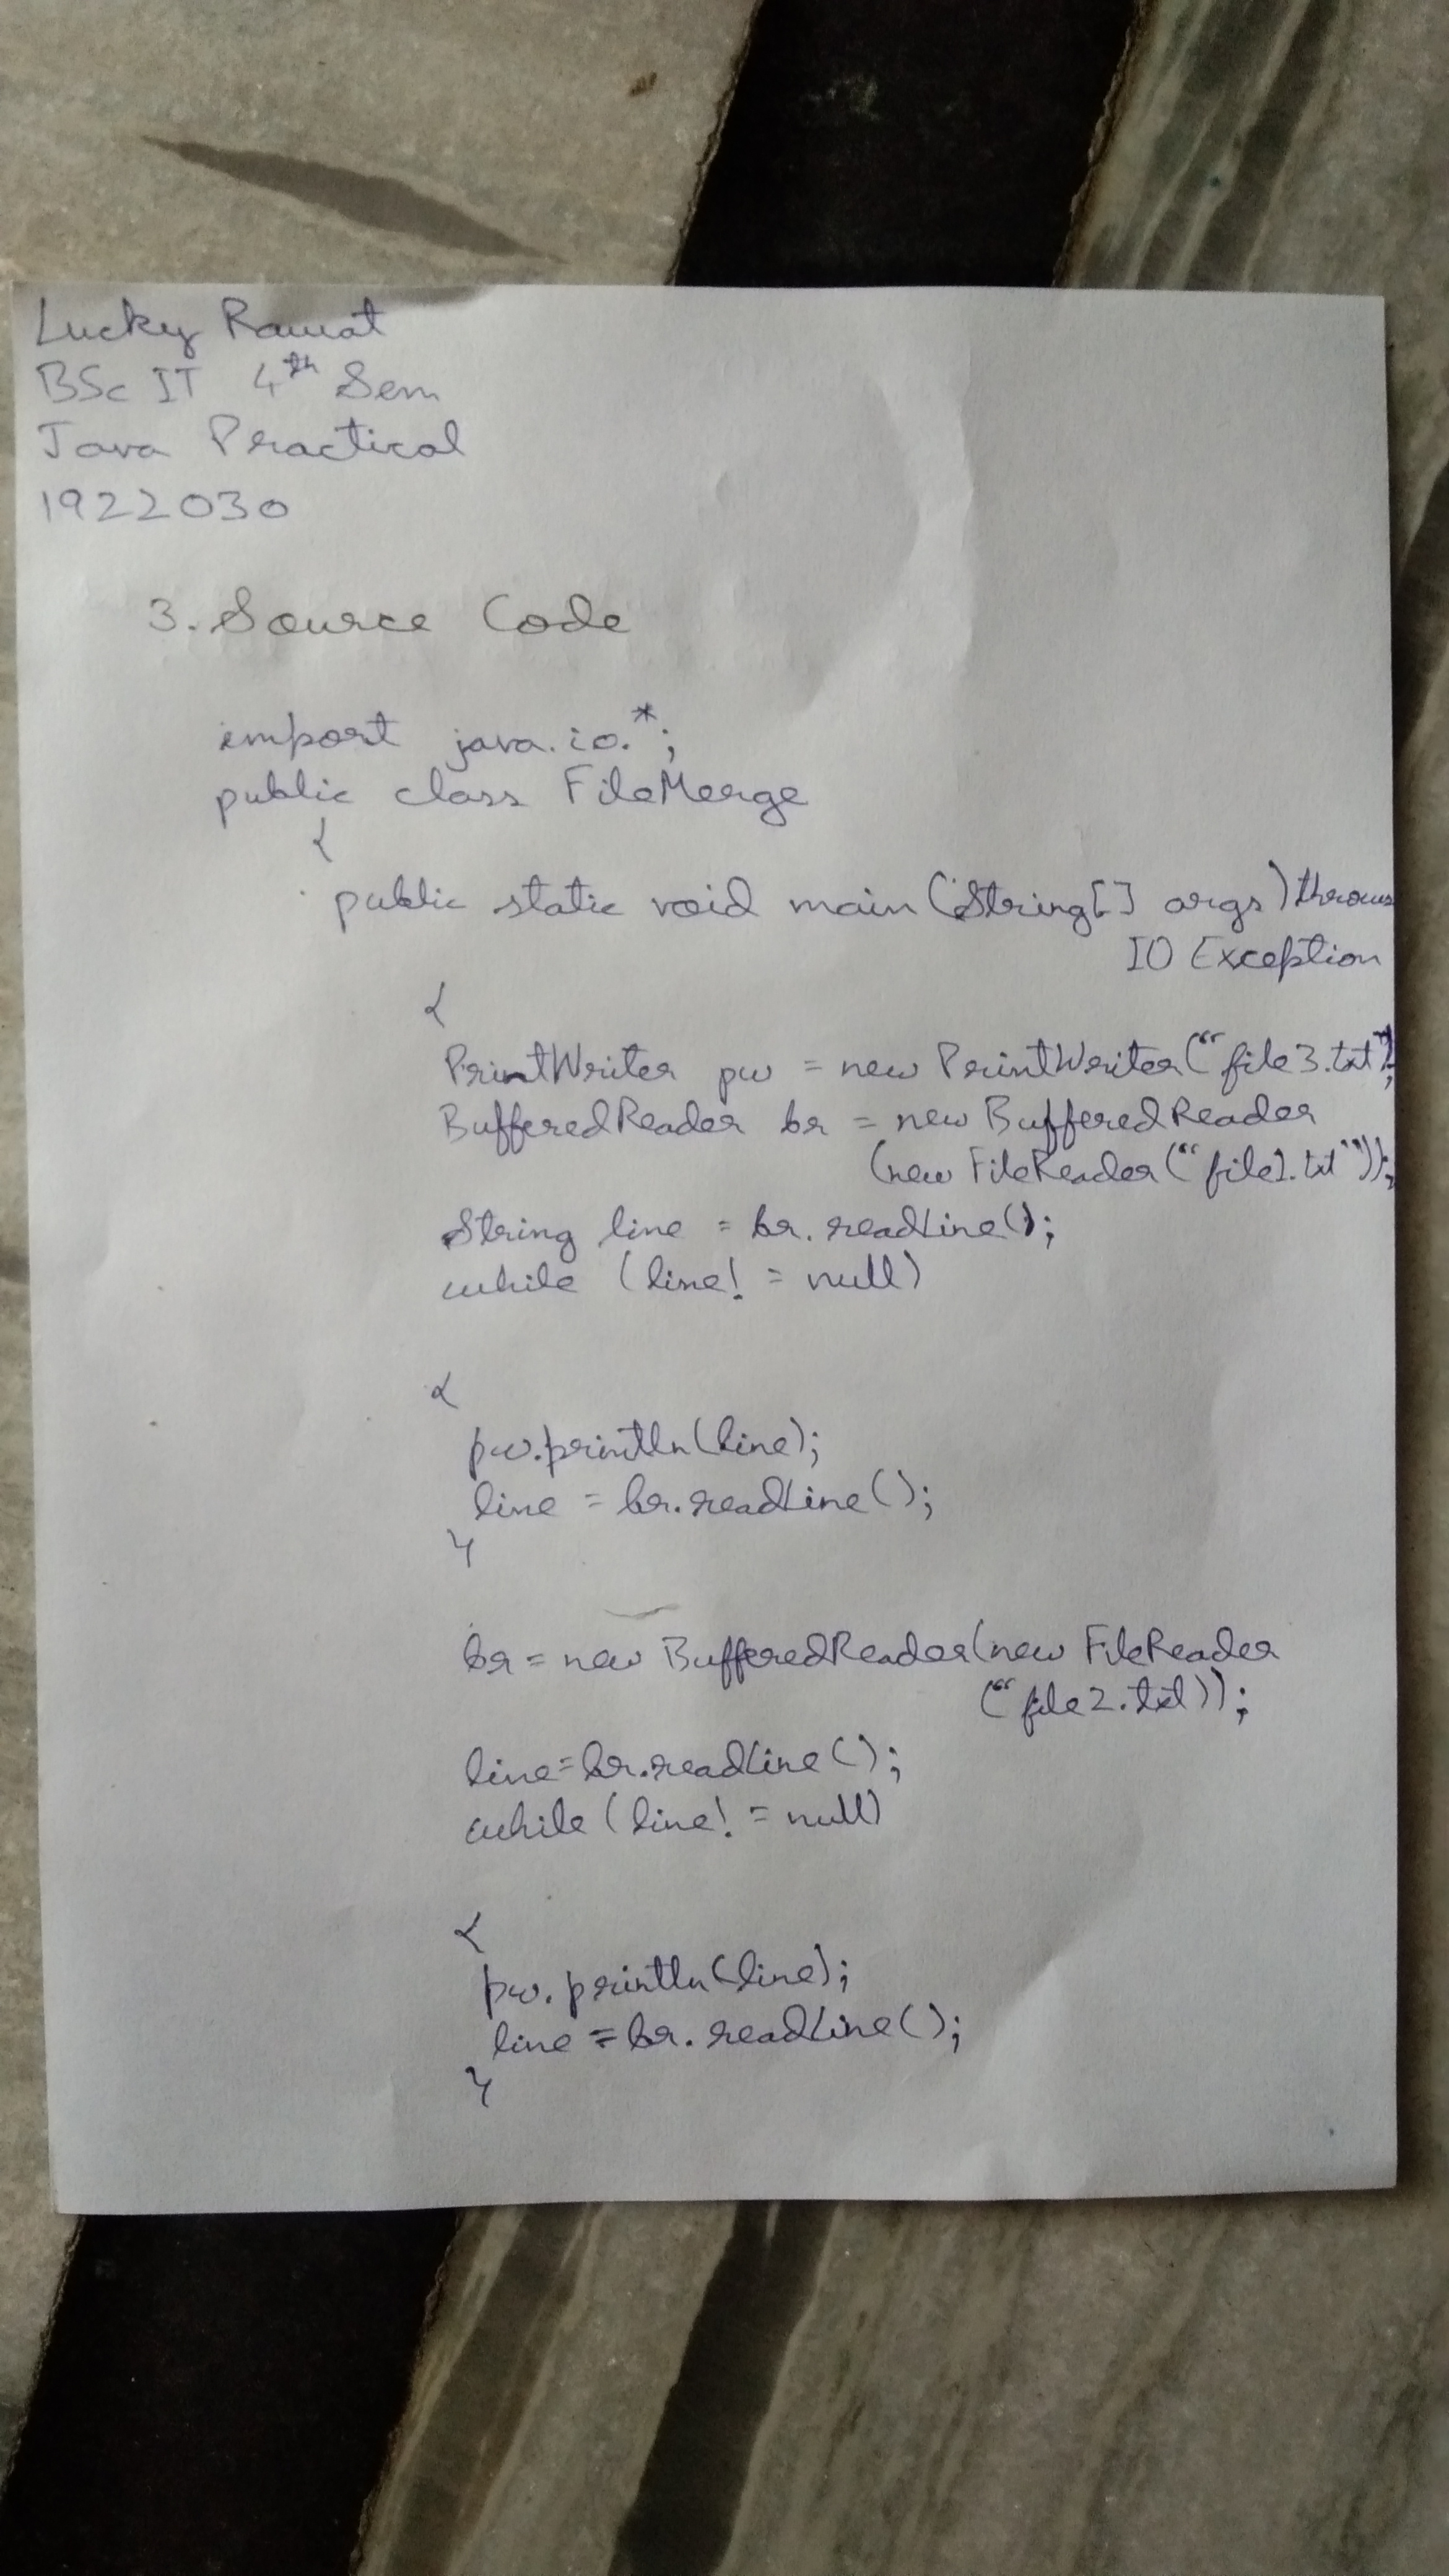 Lucky Rawat
BSc IT 4th Sem
Java Practical
1922030
3. Source Code
import java.io.*;
public class FileMerge
{
public static void main(String[] args) throws
IO Exception
{
PrintWriter pw = new PrintWriter("file3.txt");
BufferedReader br = new BufferedReader
(new FileReader("file1.txt"));
String line = br.readLine();
while (line! = null)
{
pw.println(line);
line = br.readLine();
}
br = new BufferedReader(new FileReader
("file2.txt));
line=br.readLine();
while (line! = null)
{
pw.println(line);
line = br.readLine();
}